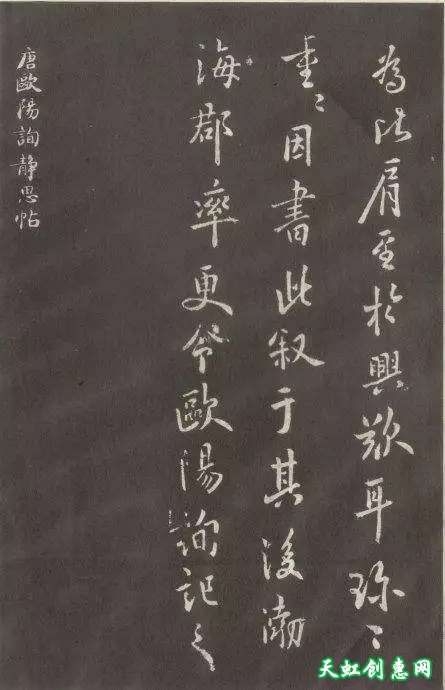 為比肩至於興歎耳珎〻
重〻因書此叙于其後渤
海郡率更令歐陽詢記之
唐歐陽詢静思帖
天虹创惠网